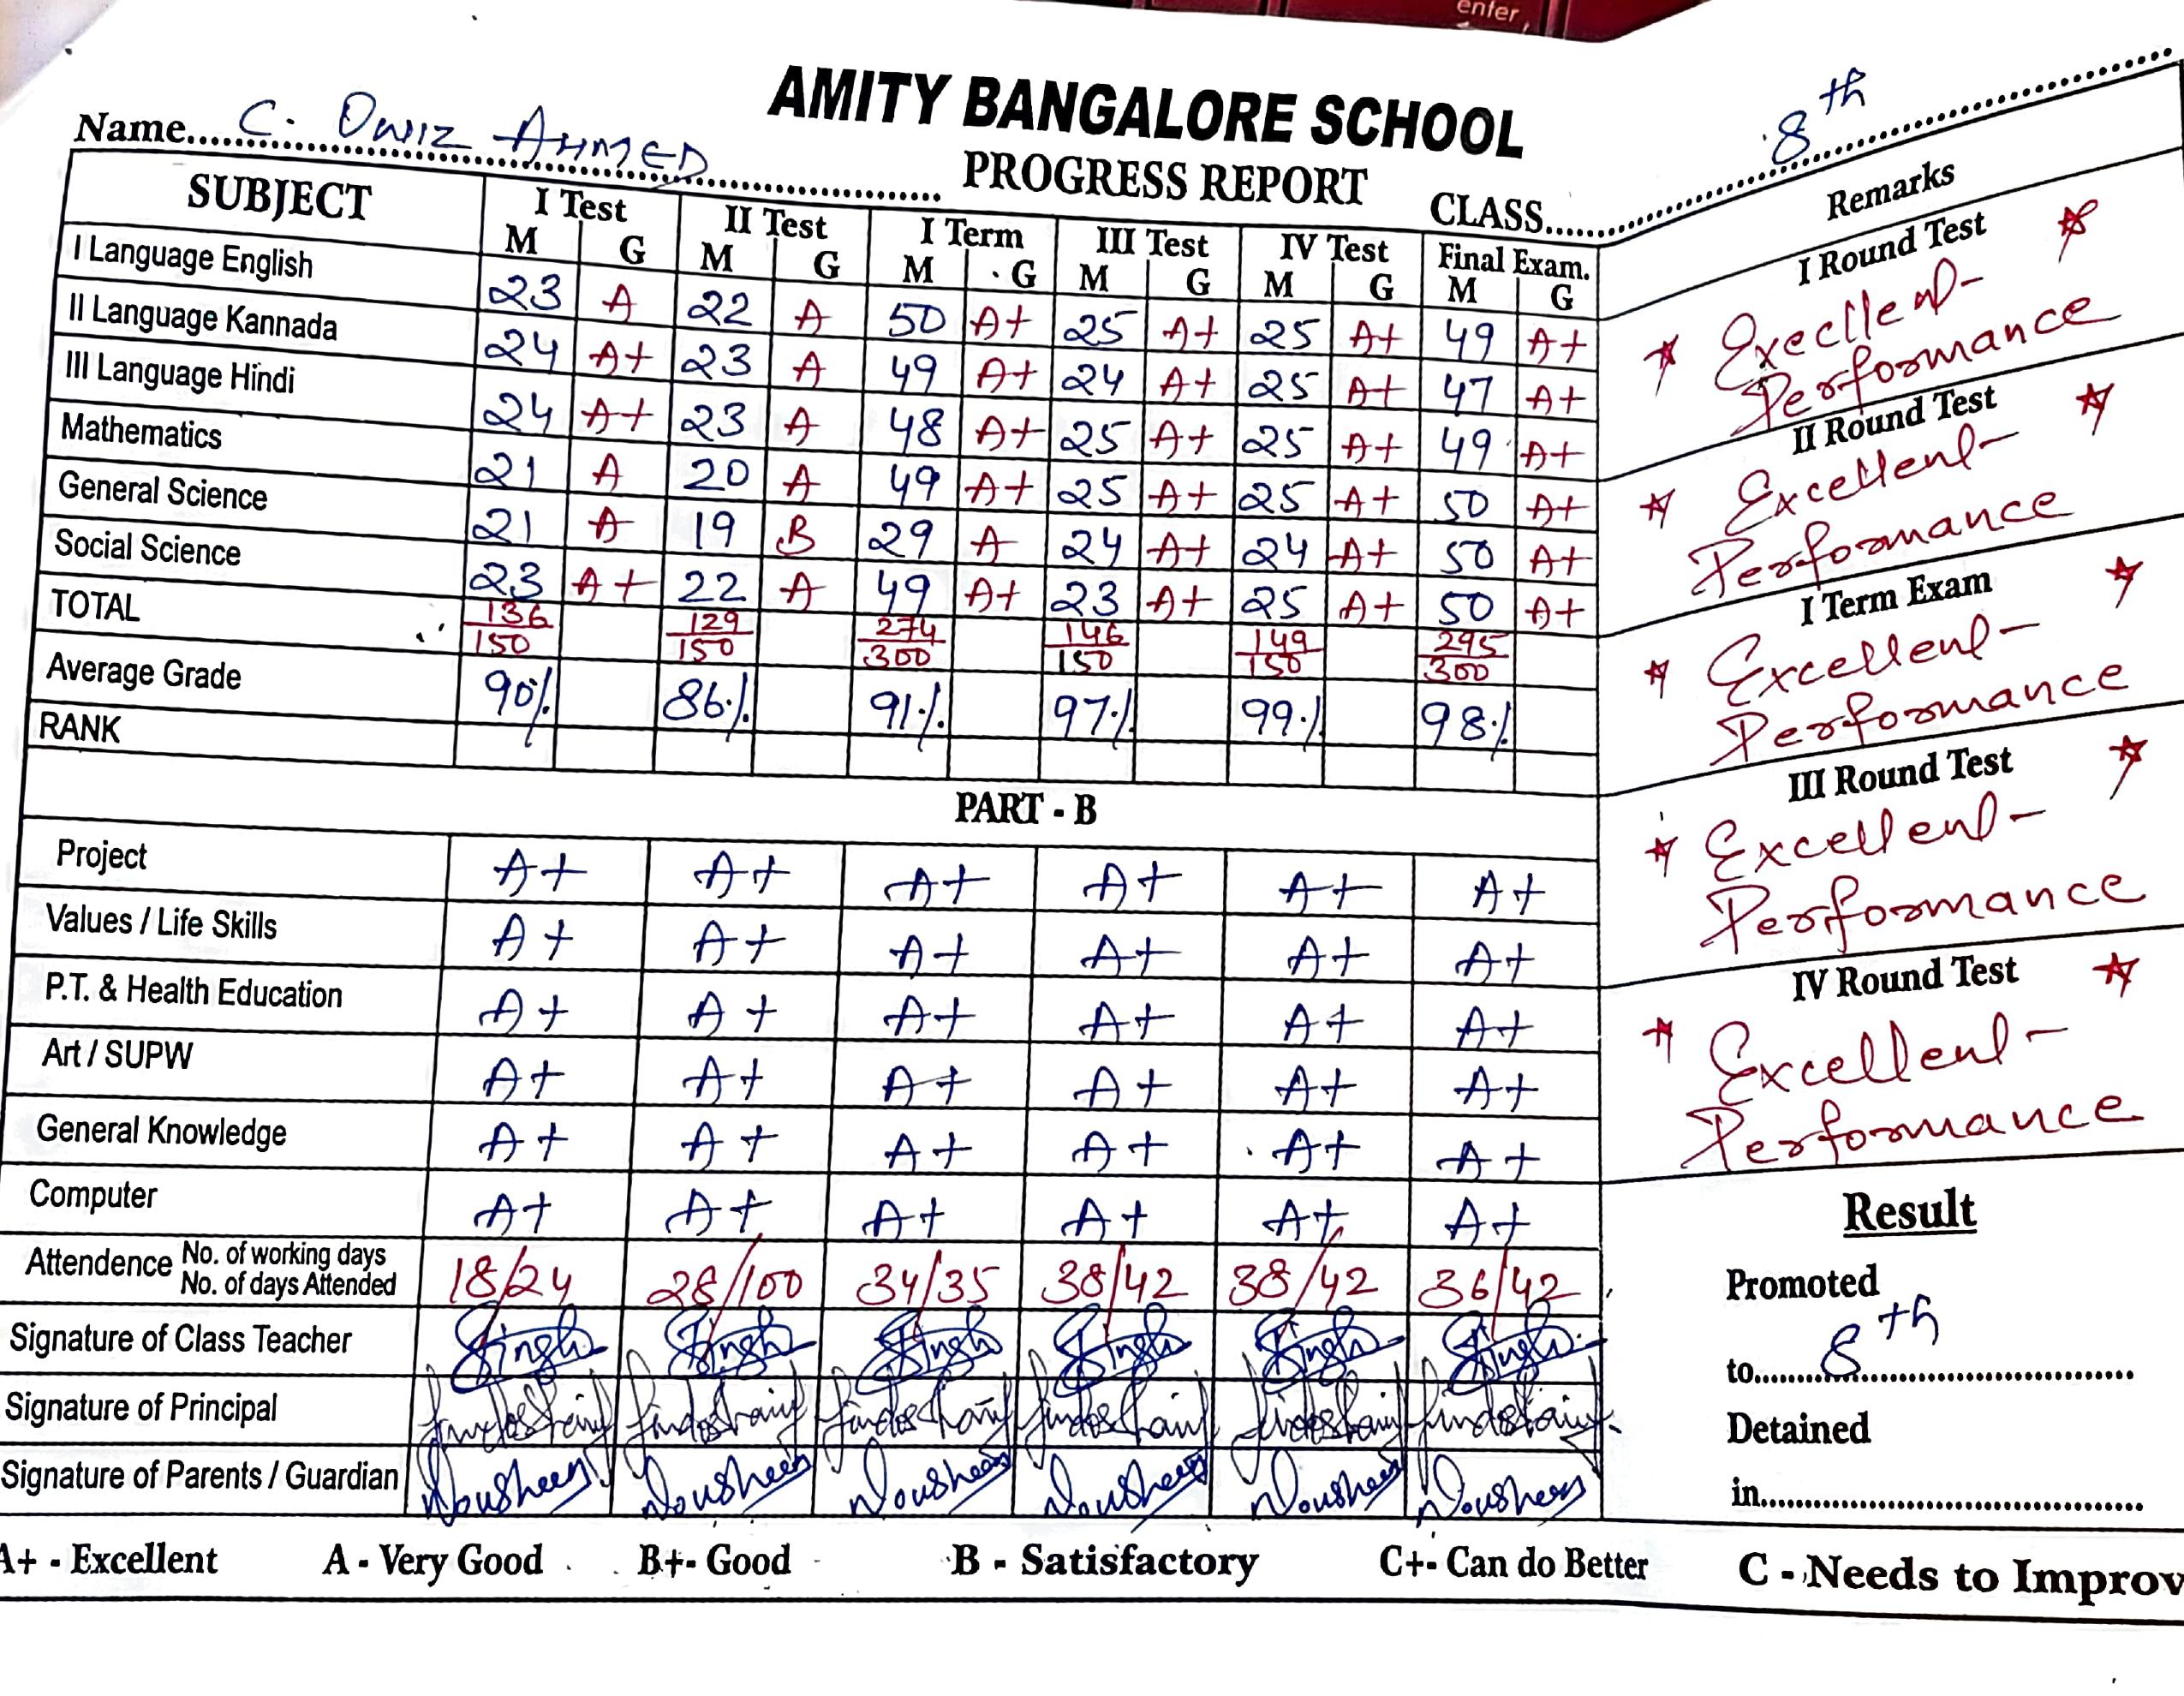 enter
AMITY BANGALORE SCHOOL
Name.....C. Owiz Ahmed..... PROGRESS REPORT CLASS.....8th.....
SUBJECT I Test II Test I Term III Test IV Test Final Exam. Remarks
M G M G M G M G M G M G
I Language English 23 A 22 A 50 A+ 25 A+ 25 A+ 49 A+
II Language Kannada 24 A+ 23 A 49 A+ 24 A+ 25 A+ 47 A+
III Language Hindi 24 A+ 23 A 48 A+ 25 A+ 25 A+ 49 A+
Mathematics 21 A 20 A 49 A+ 25 A+ 25 A+ 50 A+
General Science 21 A 19 B 29 A 24 A+ 24 A+ 50 A+
Social Science 23 A+ 22 A 49 A+ 23 A+ 25 A+ 50 A+
TOTAL 136/150 129/150 274/300 146/150 149/150 295/300
Average Grade 90% 86% 91% 97% 99% 98%
RANK
PART - B
Project A+ A+ A+ A+ A+ A+
Values / Life Skills A+ A+ A+ A+ A+ A+
P.T. & Health Education A+ A+ A+ A+ A+ A+
Art / SUPW A+ A+ A+ A+ A+ A+
General Knowledge A+ A+ A+ A+ A+ A+
Computer A+ A+ A+ A+ A+ A+
Attendence No. of working days
No. of days Attended 18/24 28/100 34/35 38/42 38/42 36/42
Signature of Class Teacher Singh Singh Singh Singh Singh Singh
Signature of Principal
Signature of Parents / Guardian
I Round Test
Execllent
Performance
II Round Test
Excellent
Performance
I Term Exam
Excellent
Performance
III Round Test
Excellent
Performance
IV Round Test
Excellent
Performance
Result
Promoted
to.....8th.....
Detained
in.....
A+ - Excellent A - Very Good B+- Good B - Satisfactory C+- Can do Better C - Needs to Improv